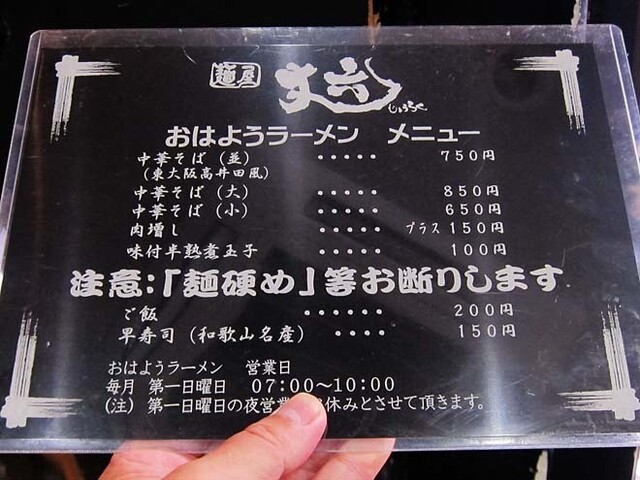 麺屋
しょうろく
おはようラーメン メニュー
中華そば（並） ・・・・・ 750円
（東大阪高井田風）
中華そば（大） ・・・・・ 850円
中華そば（小） ・・・・・ 650円
肉増し ・・・・・ プラス150円
味付半熟煮玉子 ・・・・・ 100円
注意：「麺硬め」等お断りします
ご飯 ・・・・・・ 200円
早寿司（和歌山名産） ・・・・ 150円
おはようラーメン 営業日
毎月 第一日曜日 07:00～10:00
（注）第一日曜日の夜営業 休みとさせて頂きます。